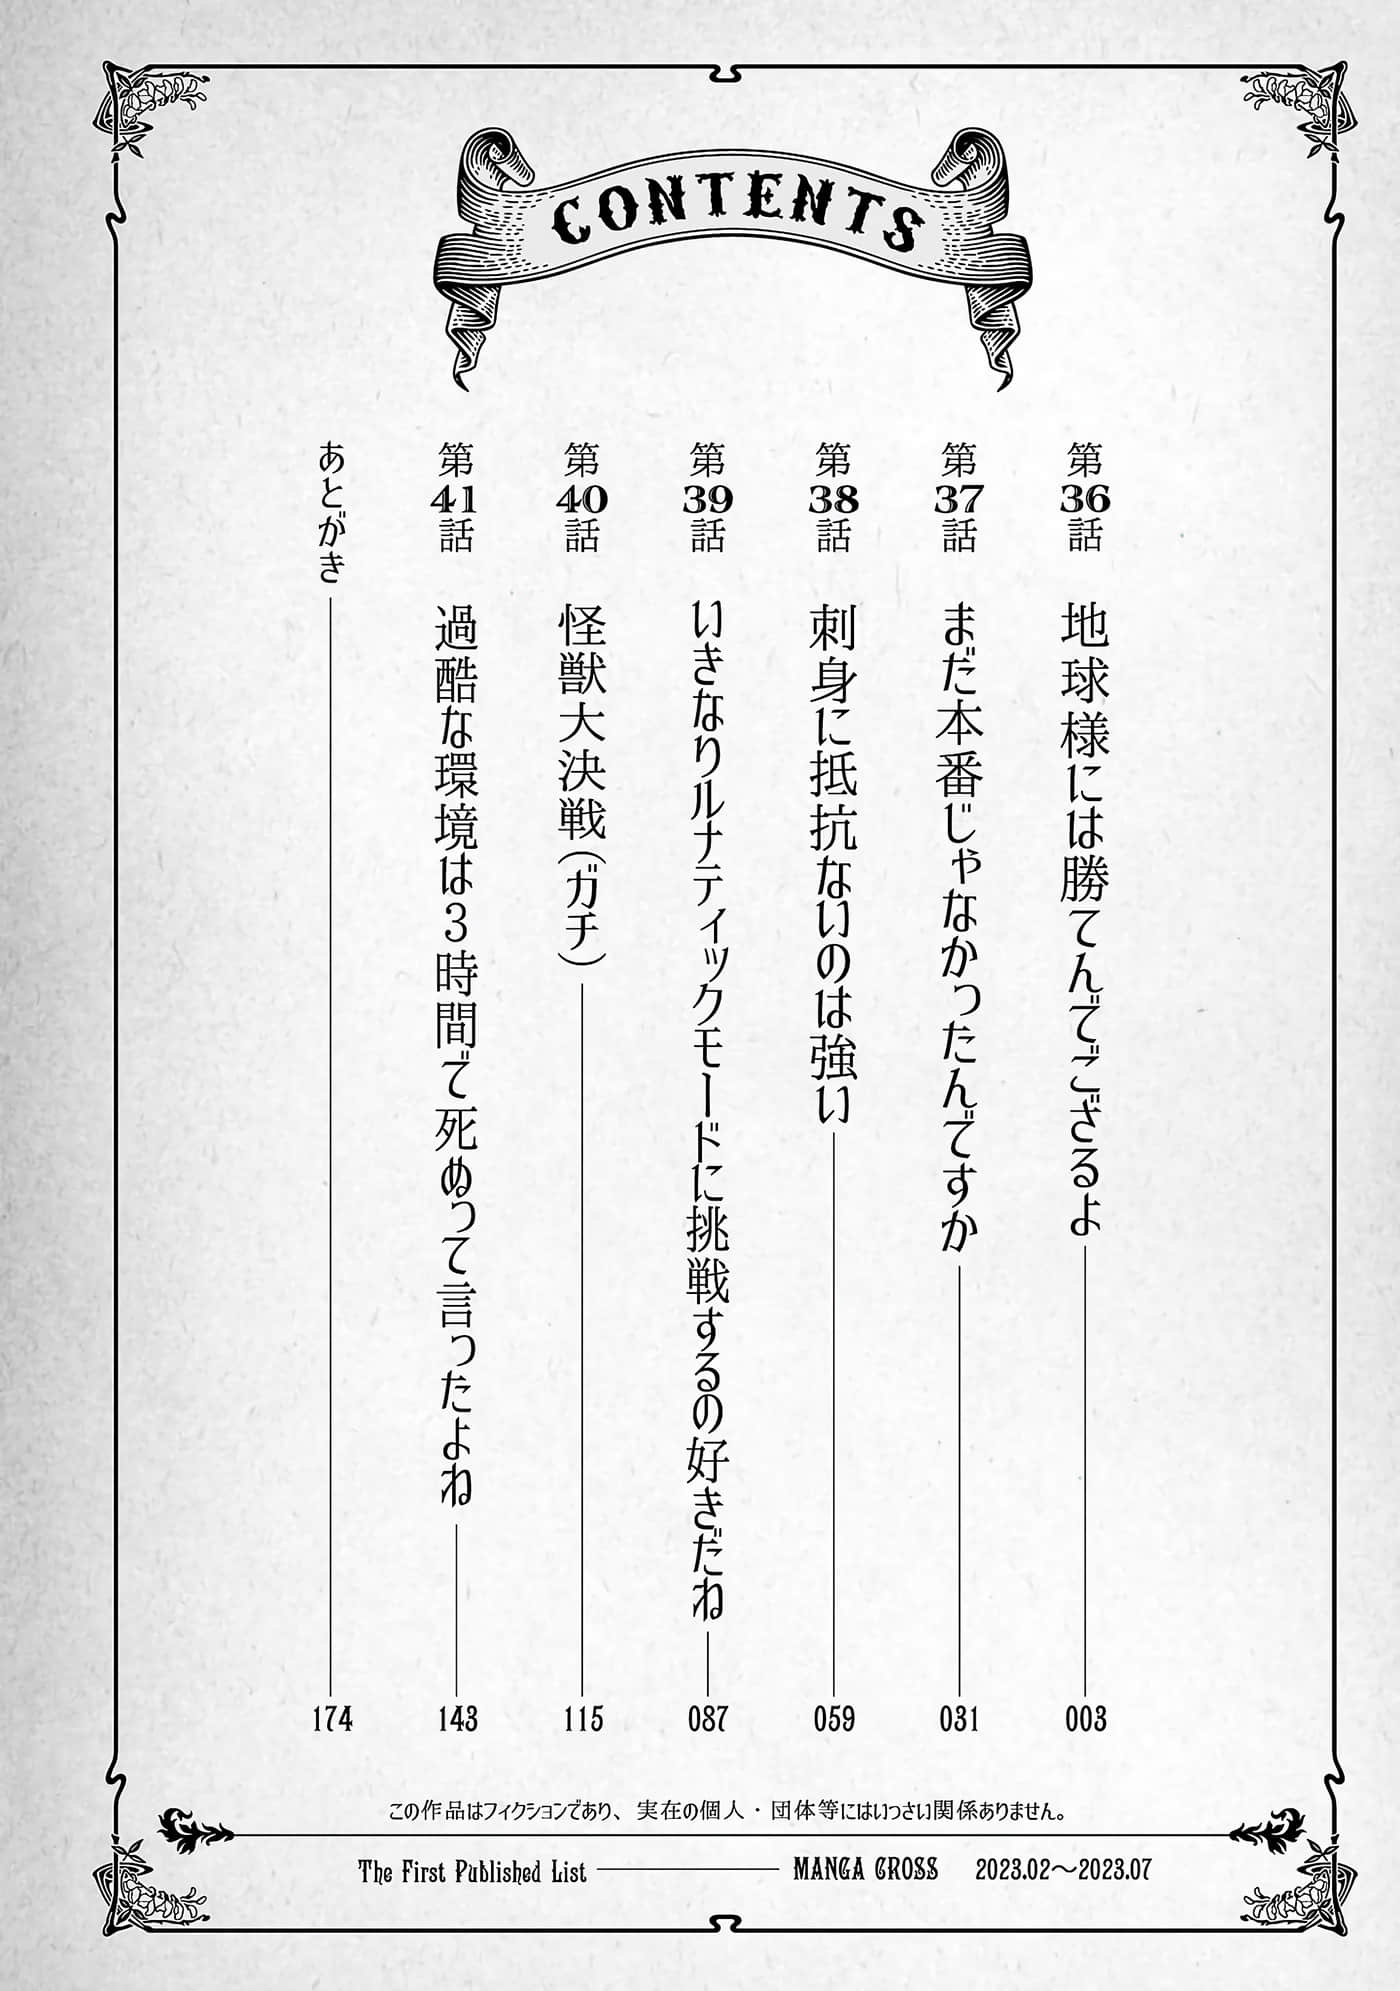 CONTENTS
第36話 地球様には勝てんでござるよ 003
第37話 まだ本番じゃなかったんですか 031
第38話 刺身に抵抗ないのは強い 059
第39話 いきなりルナティックモードに挑戦するの好きだね 087
第40話 怪獣大決戦(ガチ) 115
第41話 過酷な環境は3時間で死ぬって言ったよね 143
あとがき 174
この作品はフィクションであり、実在の個人・団体等にはいっさい関係ありません。
The First Published List MANGA CROSS 2023.02～2023.07